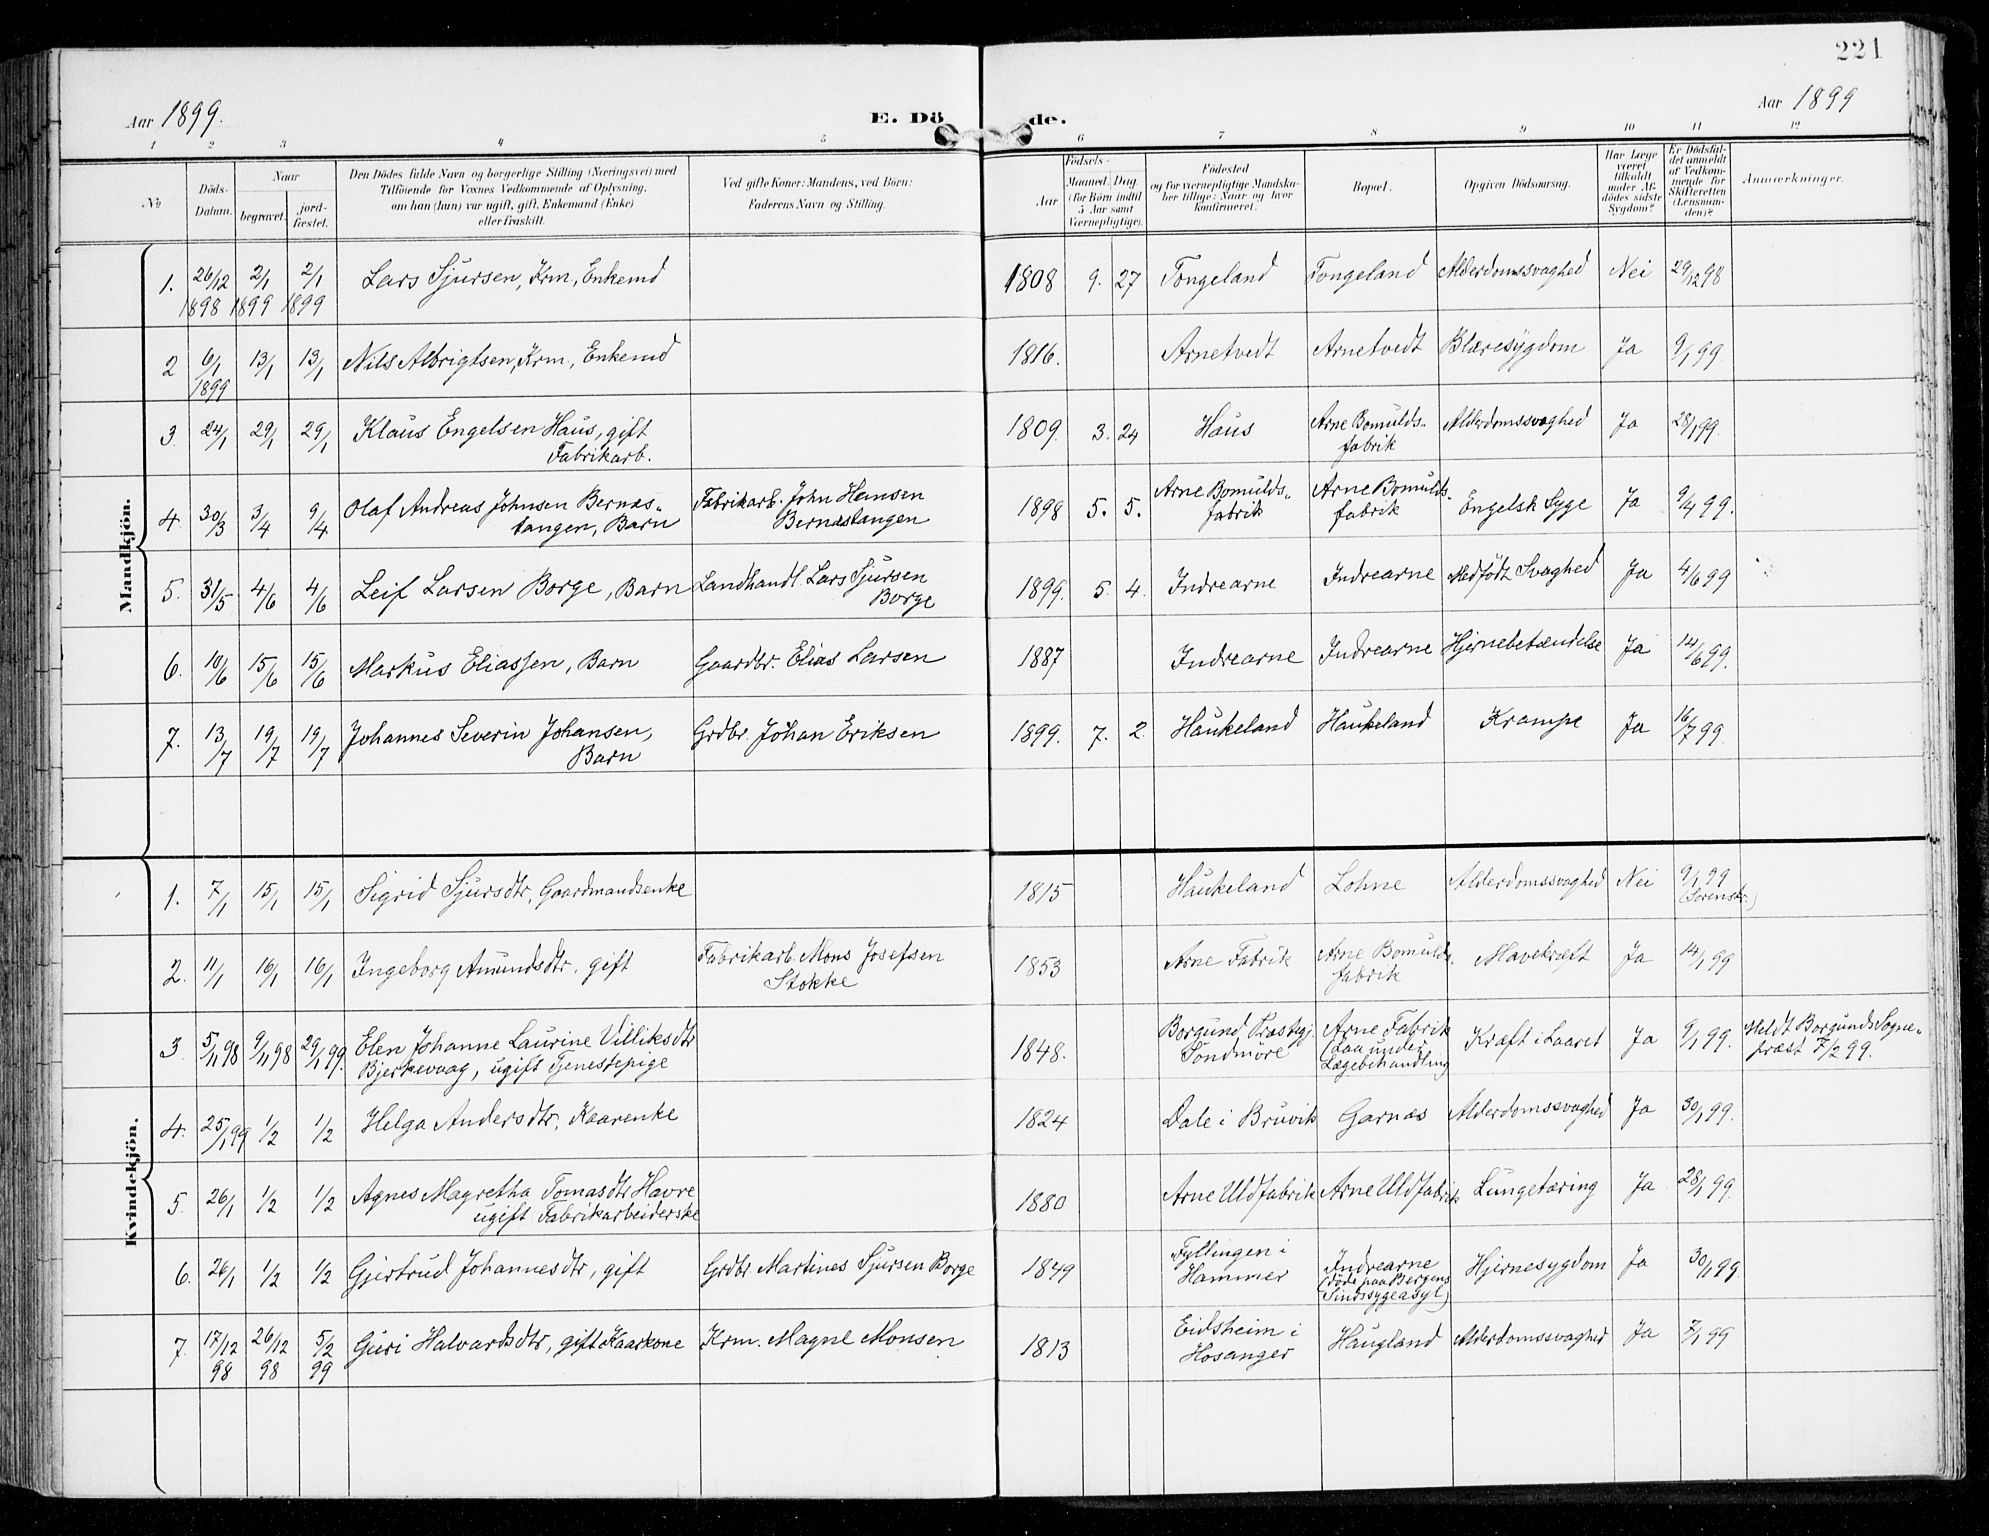 221
Aar 1899.
E. Dö
de.
Aar 1899
1 2 3 4 5 6 7 8 9 10 11 12
No
Döds-
Datum.
Naar
begravet.
jord-
fæstet.
Den Dödes fulde Navn og borgerlige Stilling (Næringsvei) med
Tilföiende for Voxnes Vedkommende af Oplysning,
om han (hun) var ugift, gift, Enkemand (Enke)
eller fraskilt.
Ved gifte Koner: Mandens, ved Börn:
Faderens Navn og Stilling.
Födsels-
Aar
Maaned. Dag.
(for Börn indtil
5 Aar samt
Værnepligtige).
Födested
og for værnepligtige Mandska-
ber tillige: Naar og hvor
konfirmeret.
Bopæl.
Opgiven Dödsaarsag.
Har Læge
været
tilkaldt
under Af-
dödes sidste
Sygdom?
Er Dödsfal-
det anmeldt
af Vedkom-
mende for
Skifteretten
(Lensman-
den)?
Anmærkninger.
Mandkjön.
1. 26/12 1898 2/1 1899 2/1 1899 Lars Sjursen, Krm, Enkemd 1808 9. 27 Tongeland Tongeland Alderdomssvaghed Nei 29/12 98
2 6/1 1899 13/1 13/1 Nils Albrigtsen, Krm, Enkemd 1816. Arnetvedt Arnetvedt Blæresygdom Ja 9/1 99
3 24/1 29/1 29/1 Klaus Engelsen Haus, gift
Fabrikarb. 1809. 3. 24 Haus Arne Bomulds-
fabrik Alderdomssvaghed Ja 28/1 99.
4. 30/3 3/4 9/4 Olaf Andreas Johnsen Bernæs-
tangen, Barn Fabrikarb. John Hansen
Bernæstangen 1898 5. 5. Arne Bomulds-
fabrik Arne Bomulds-
fabrik Engelsk Syge Ja 9/4 99.
5. 31/5 4/6 4/6 Leif Larsen Borge, Barn Landhandl. Lars Sjursen
Borge 1899. 5. 4. Indrearne Indrearne Medfödt Svaghed Ja 4/6 99
6. 10/6 15/6 15/6 Markus Eliassen, Barn Gaardbr. Elias Larsen 1887 Indrearne Indrearne Hjernebetændelse Ja 14/6 99.
7. 13/7 19/7 19/7 Johannes Severin Johansen,
Barn Grdbr. Johan Eriksen 1899. 7. 2. Haukeland Haukeland Krampe Ja 16/7 99.
Kvindekjön.
1. 7/1 15/1 15/1 Sigrid Sjursdtr, Gaardmandsenke 1815 Haukeland Lohne Alderdomssvaghed Nei 9/1 99
(Sorenskr.)
2. 11/1 16/1 16/1 Ingeborg Amundsdtr. gift Fabrikarb. Mons Josefsen
Stokke 1853 Arne Fabrik Arne Bomulds-
fabrik Mavekræft Ja 14/1 99
3 5/11 98 9/11 98 29/1 99. Elen Johanne Laurine Villiksdtr
Bjerkevaag, ugift Tjenestepige 1848. Borgund Præstegj.
Söndmöre Arne Fabrik
(Laa under
Lægebehandling Kræft i Laaret Ja 9/1 99. Meldt Borgunds Sogne-
præst 7/2 99.
4. 25/1 99 1/2 1/2 Helga Andersdtr. Kaarenke 1824 Dale i Bruvik Garnæs Alderdomssvaghed Ja 30/1 99.
5. 26/1 1/2 1/2 Agnes Magretha Tomasdtr Havre
ugift Fabrikarbeiderske 1880 Arne Uldfabrik Arne Uldfabrik Lungetæring Ja 28/1 99.
6. 26/1 1/2 1/2 Gjertrud Johannesdtr, gift Grdbr. Martines Sjursen Borge 1849 Fyllingen i
Hammer Indrearne
(döde paa Bergens
Sindssygeasyl) Hjernesygdom Ja 30/1 99.
7. 17/12 98 26/12 98 5/2 99 Guri Halvardsdtr, gift Kaarkone Krm. Magne Monsen 1813 Eidsheim i
Hosanger Haugland Alderdomssvaghed Ja 7/1 99